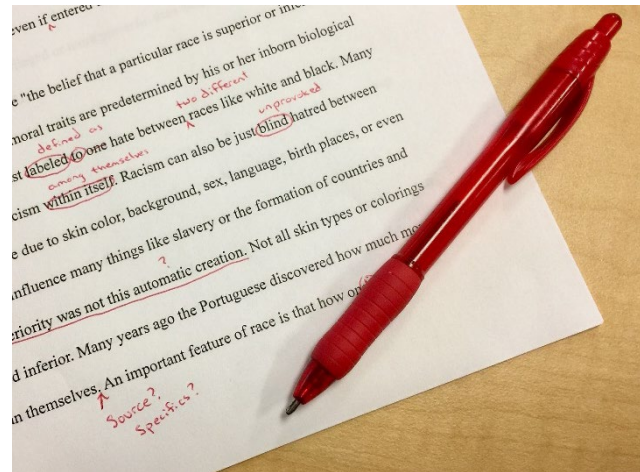 even if entered
^
e "the belief that a particular race is superior or
moral traits are predetermined by his or her inborn biological
defined as
two different
st labeled to one hate between races like white and black. Many
^
among themselves
unprovoked
cism within itself. Racism can also be just blind hatred between
e due to skin color, background, sex, language, birth places, or even
influence many things like slavery or the formation of countries and
?
eriority was not this automatic creation. Not all skin types or colorings
d inferior. Many years ago the Portuguese discovered how much
n themselves. An important feature of race is that how
Source?
Specifics?